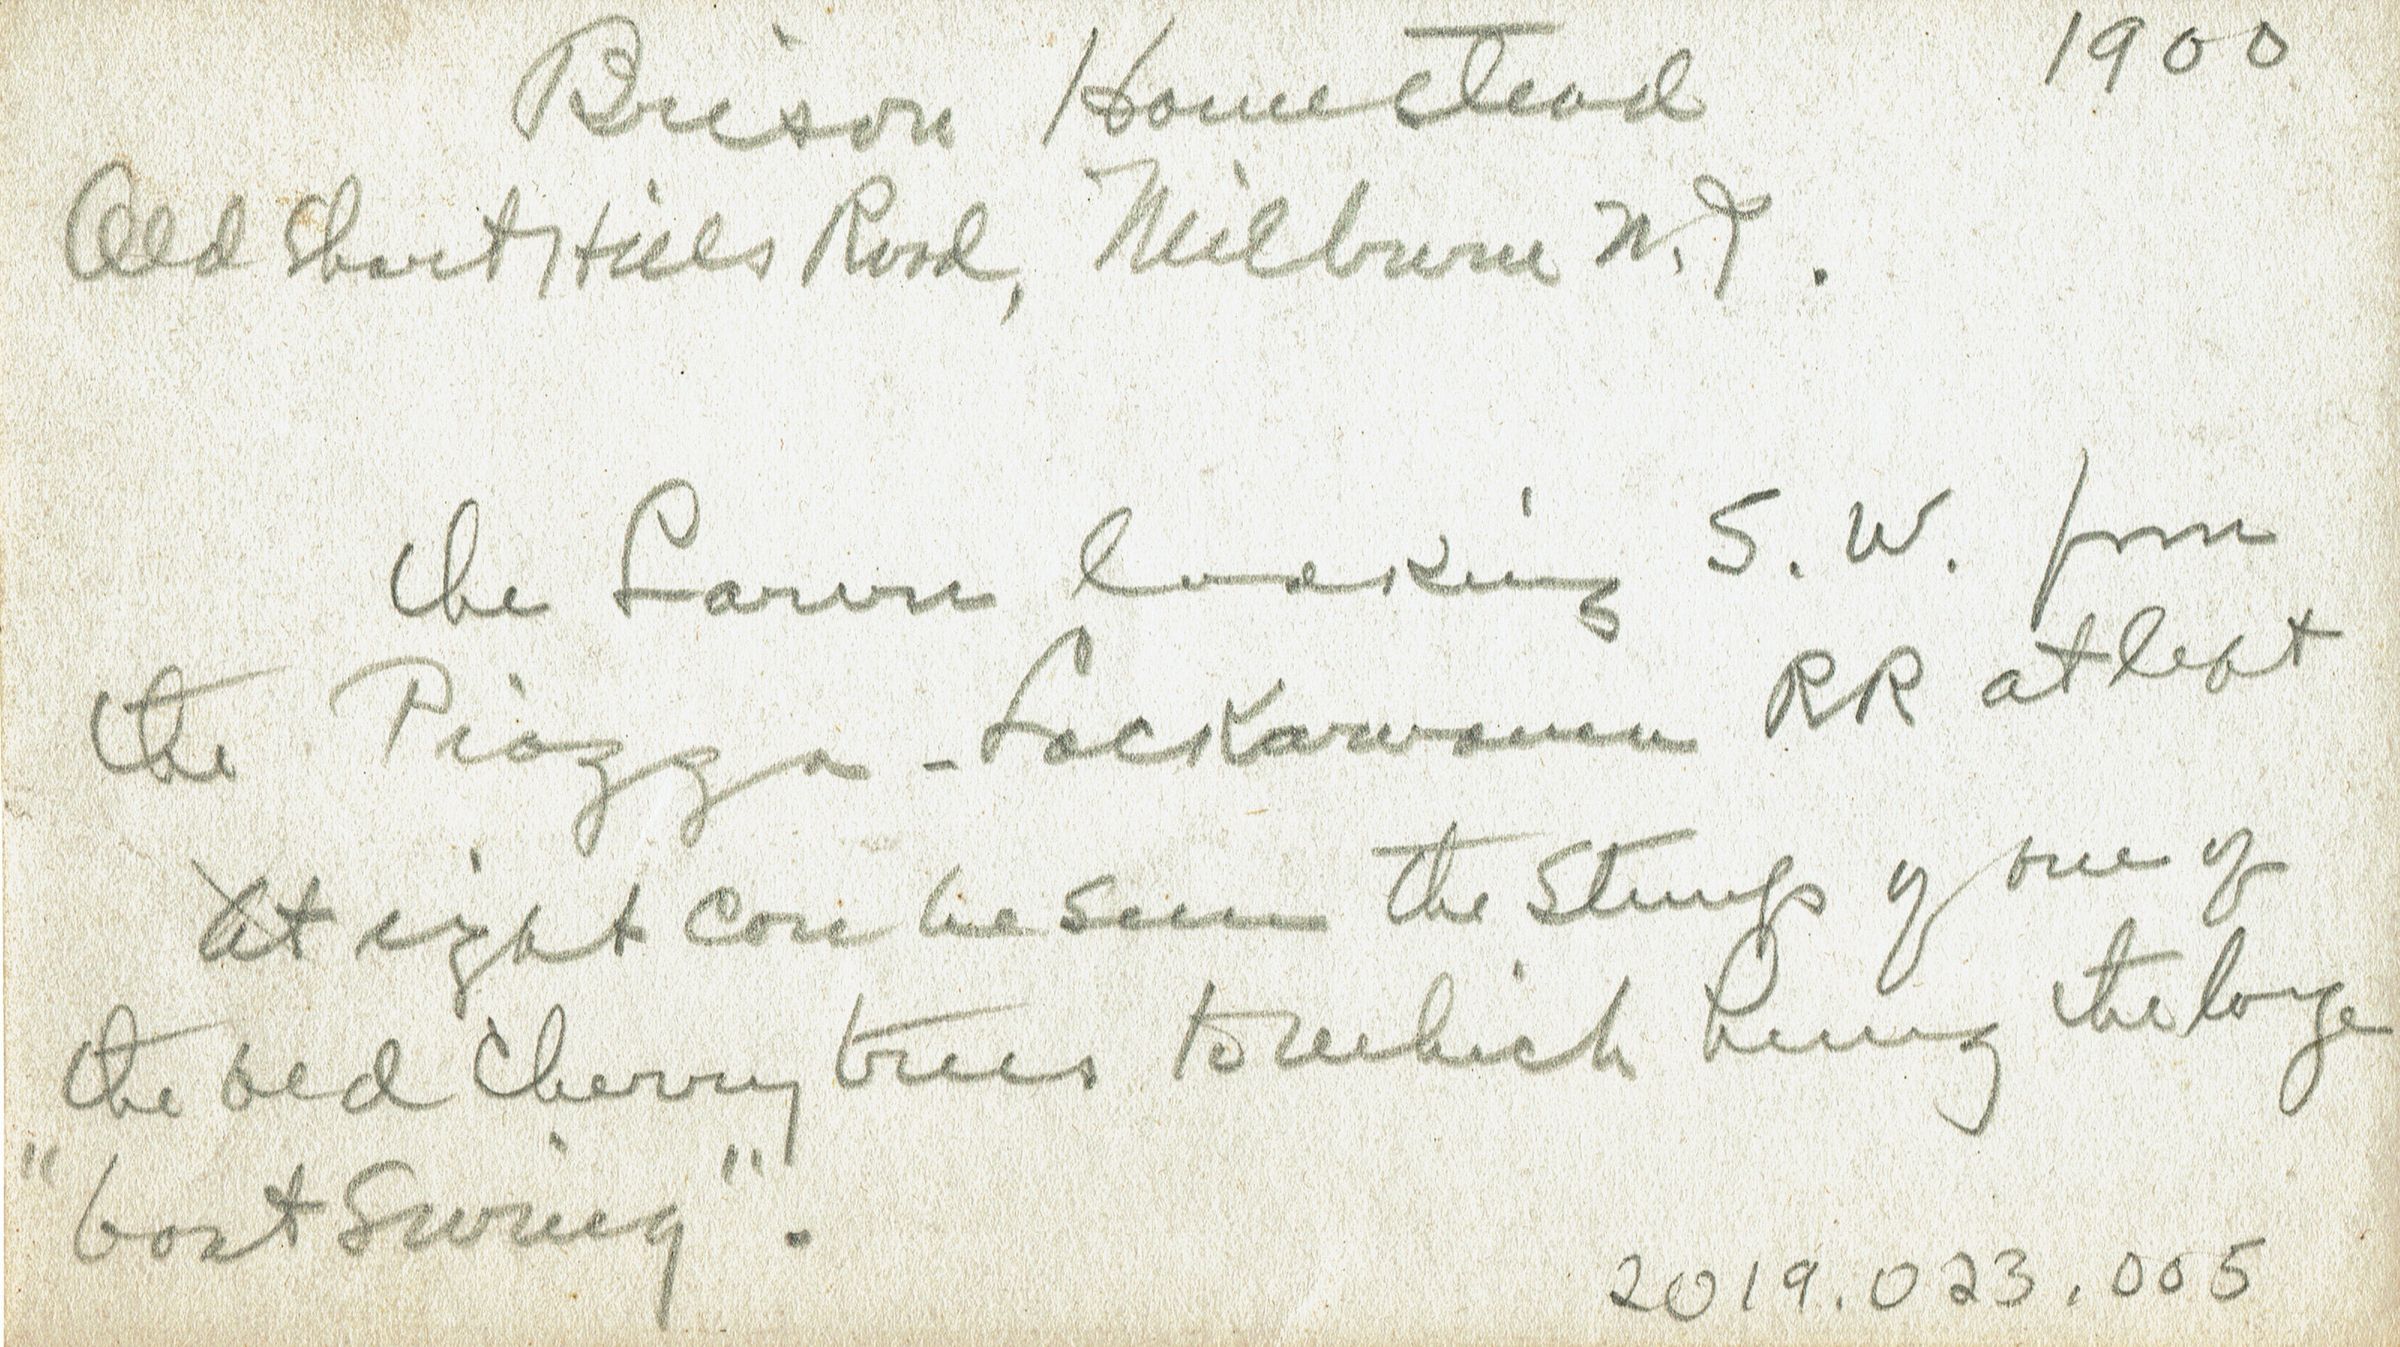 Brison Homestead 1900
Old Short Hills Road, Milburn N.J.
the Lawn looking S.W. from
the Piazza - Lackawanna RR at left
At right can be seen the stump of one of
the old Cherry trees to which hung the large
"boat Swing".
2019.023.005